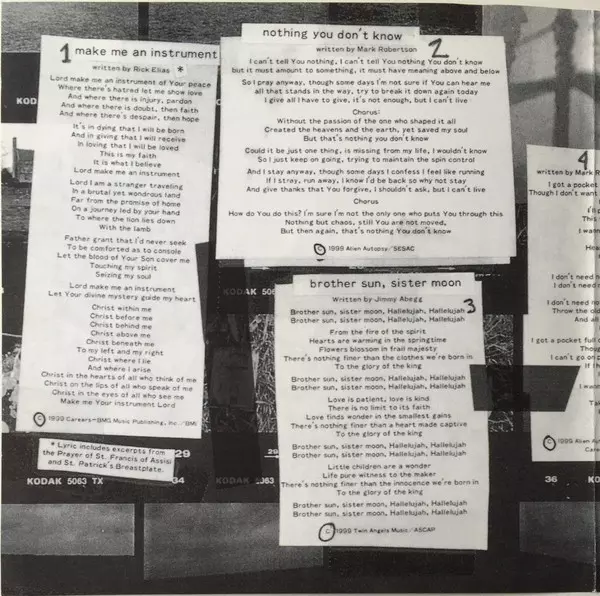 1 make me an instrument
written by Rick Elias *
Lord make me an instrument of Your peace
Where there's hatred let me show love
And where there is injury, pardon
And where there is doubt, then faith
And where there's despair, then hope
It's in dying that I will be born
And in giving that I will receive
In loving that I will be loved
This is my faith
It is what I believe
Lord make me an instrument
Lord I am a stranger traveling
In a brutal yet wondrous land
Far from the promise of home
On a journey led by your hand
To where the lion lies down
With the lamb
Father grant that I'd never seek
To be comforted as to console
Let the blood of Your Son cover me
Touching my spirit
Seizing my soul
Lord make me an instrument
Let Your divine mystery guide my heart
Christ within me
Christ before me
Christ behind me
Christ above me
Christ beneath me
To my left and my right
Christ where I lie
And where I arise
Christ in the hearts of all who think of me
Christ on the lips of all who speak of me
Christ in the eyes of all who see me
Make me Your instrument Lord
© 1999 Careers-BMG Music Publishing, Inc./BMI
* Lyric includes excerpts from
the Prayer of St. Francis of Assisi
and St. Patrick's Breastplate.
nothing you don't know
written by Mark Robertson 2
I can't tell You nothing, I can't tell You nothing You don't know
but it must amount to something, it must have meaning above and below
So I pray anyway, though some days I'm not sure if You can hear me
all that stands in the way, try to break it down again today
I give all I have to give, it's not enough, but I can't live
Chorus:
Without the passion of the one who shaped it all
Created the heavens and the earth, yet saved my soul
But that's nothing you don't know
Could it be just one thing, is missing from my life, I wouldn't know
So I just keep on going, trying to maintain the spin control
And I stay anyway, though some days I confess I feel like running
If I stray, run away, I know I'd be back so why not stay
And give thanks that You forgive, I shouldn't ask, but I can't live
Chorus
How do You do this? I'm sure I'm not the only one who puts You through this
Nothing but chaos, still You are not moved,
But then again, that's nothing You don't know
© 1999 Alien Autopsy/SESAC
brother sun, sister moon
Written by Jimmy Abegg
3
Brother sun, sister moon, Hallelujah, Hallelujah
Brother sun, sister moon, Hallelujah, Hallelujah
From the fire of the spirit
Hearts are warming in the springtime
Flowers blossom in frail majesty
There's nothing finer than the clothes we're born in
To the glory of the king
Brother sun, sister moon, Hallelujah, Hallelujah
Brother sun, sister moon, Hallelujah, Hallelujah
Love is patient, love is kind
There is no limit to its faith
Love finds wonder in the smallest gains
There's nothing finer than a heart made captive
To the glory of the king
Brother sun, sister moon, Hallelujah, Hallelujah
Brother sun, sister moon, Hallelujah, Hallelujah
Little children are a wonder
Life pure witness to the maker
There's nothing finer than the innocence we're born in
To the glory of the king
Brother sun, sister moon, Hallelujah, Hallelujah
Brother sun, sister moon, Hallelujah, Hallelujah
© 1999 Twin Angels Music/ASCAP
4
written by Mark R
I got a pocket
Though I don't want
This
I wan
I don't need
I don't need
I don't need no
Throw the old
And all
I got a pocket full
Thou
I can't go on
If I
I wan
Tak
© 1999 Alien Aut
Care
KOD
KODAK 506
29
29
KODAK 5063 TX
34
KODAK 5063
36
KO